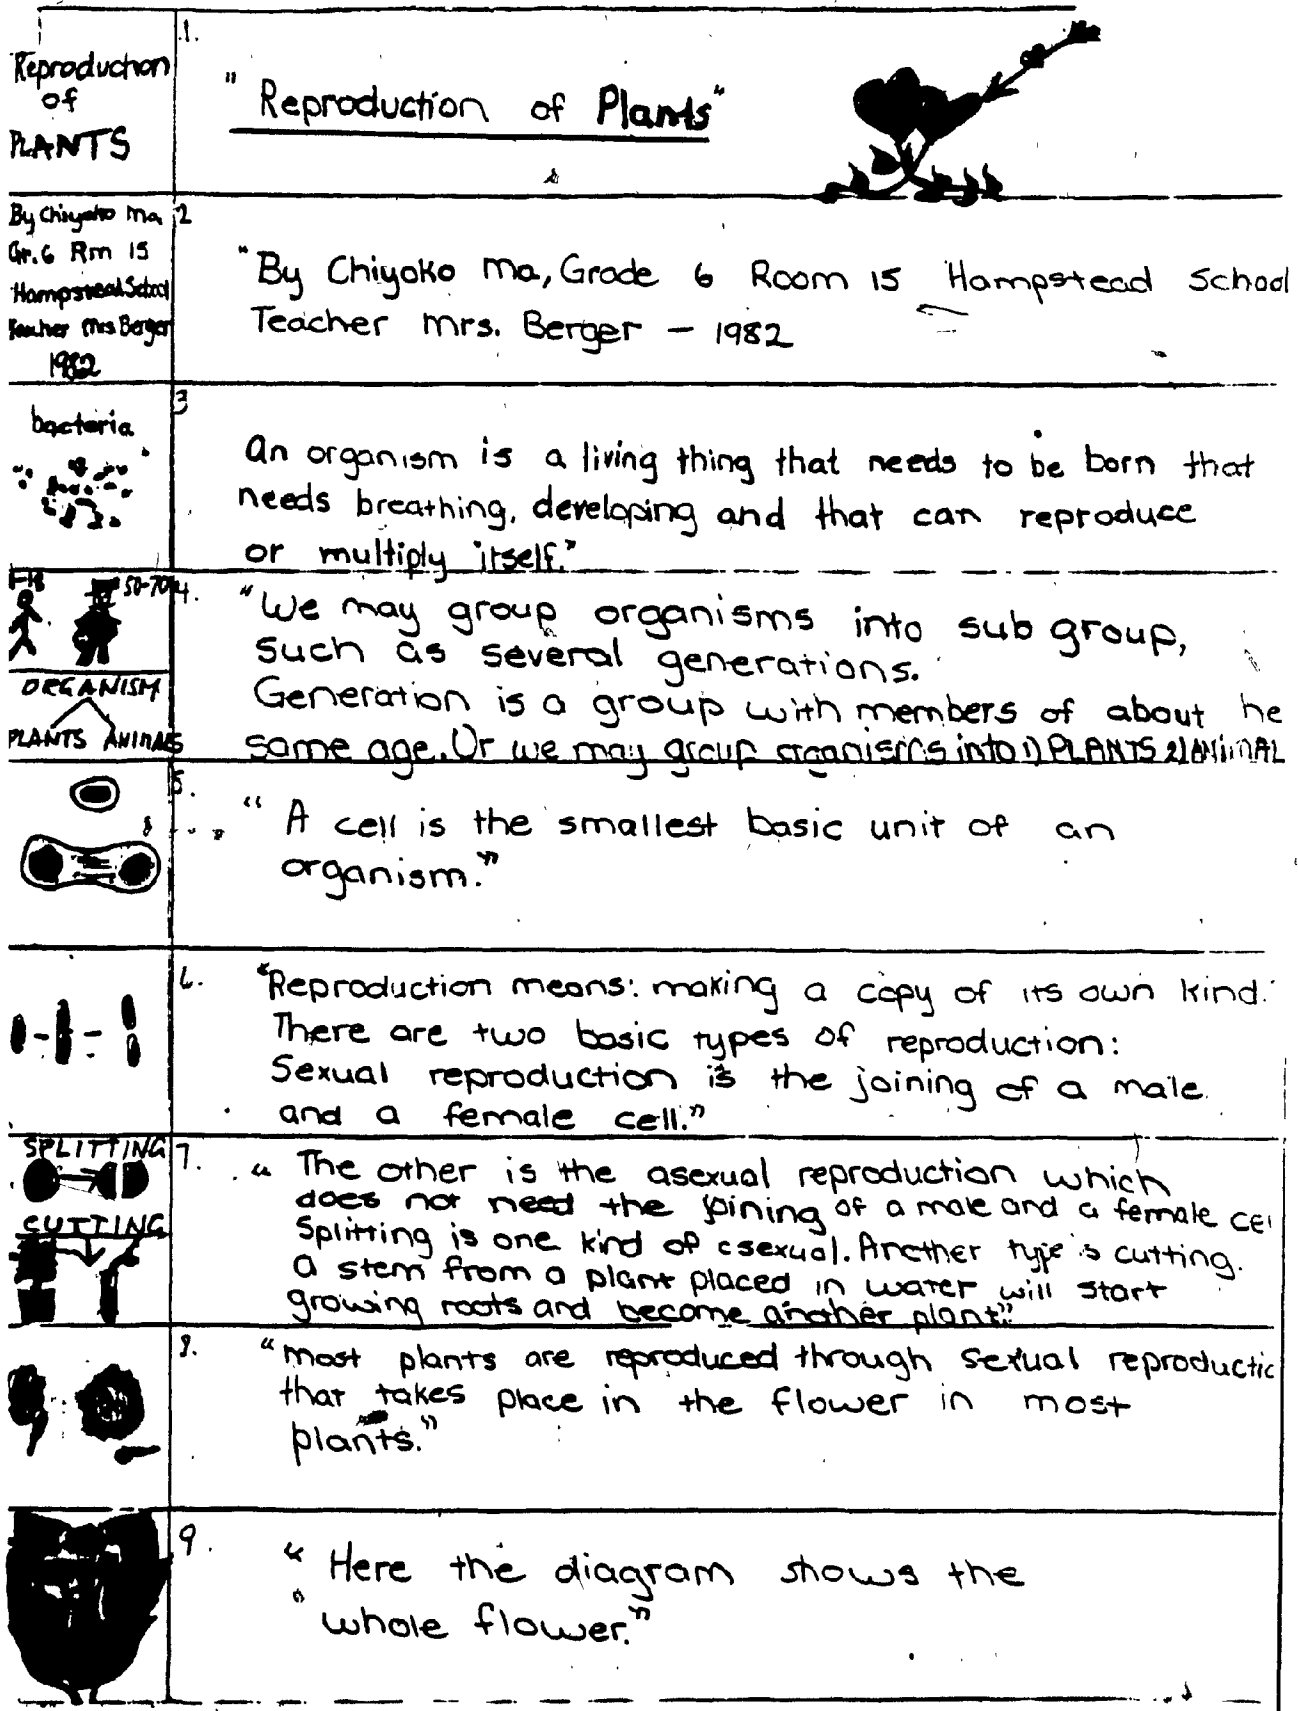 Reproduction
of
PLANTS
1.
"Reproduction of Plants"
By Chiyoko Ma
Gr. 6 Rm 15
Hampstead School
Teacher Mrs Berger
1982
2
"By Chiyoko Ma, Grade 6 Room 15 Hampstead School
Teacher Mrs. Berger - 1982
bacteria
3
An organism is a living thing that needs to be born that
needs breathing, developing and that can reproduce
or multiply itself."
1-18
50-70
ORGANISM
PLANTS ANIMALS
4.
"We may group organisms into sub group,
such as several generations.
Generation is a group with members of about he
same age. Or we may group organisms into 1) PLANTS 2) ANIMAL
5.
"A cell is the smallest basic unit of an
organism."
6.
"Reproduction means: making a copy of its own kind.
There are two basic types of reproduction:
Sexual reproduction is the joining of a male
and a female cell."
SPLITTING
CUTTING
7.
"The other is the asexual reproduction which
does not need the joining of a male and a female cel
Splitting is one kind of asexual. Another type is cutting.
A stem from a plant placed in water will start
growing roots and become another plant"
8.
"Most plants are reproduced through sexual reproductio
that takes place in the flower in most
plants."
9.
"Here the diagram shows the
"whole flower."